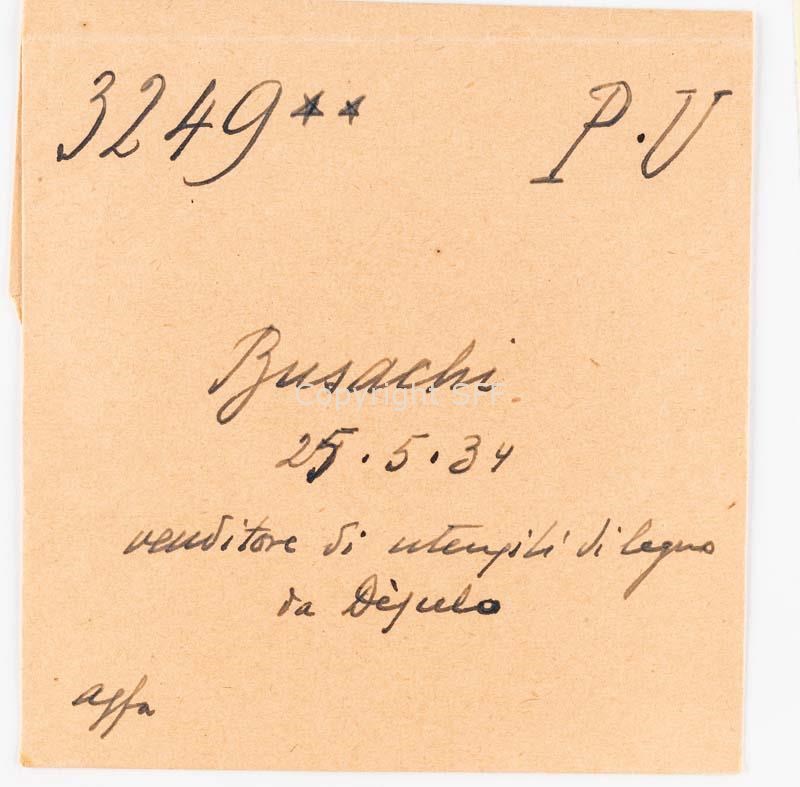 3249** P.V
Busachi
Copyright SFF
25.5.34
venditore di utensili di legno
da Dèsulo
agfa